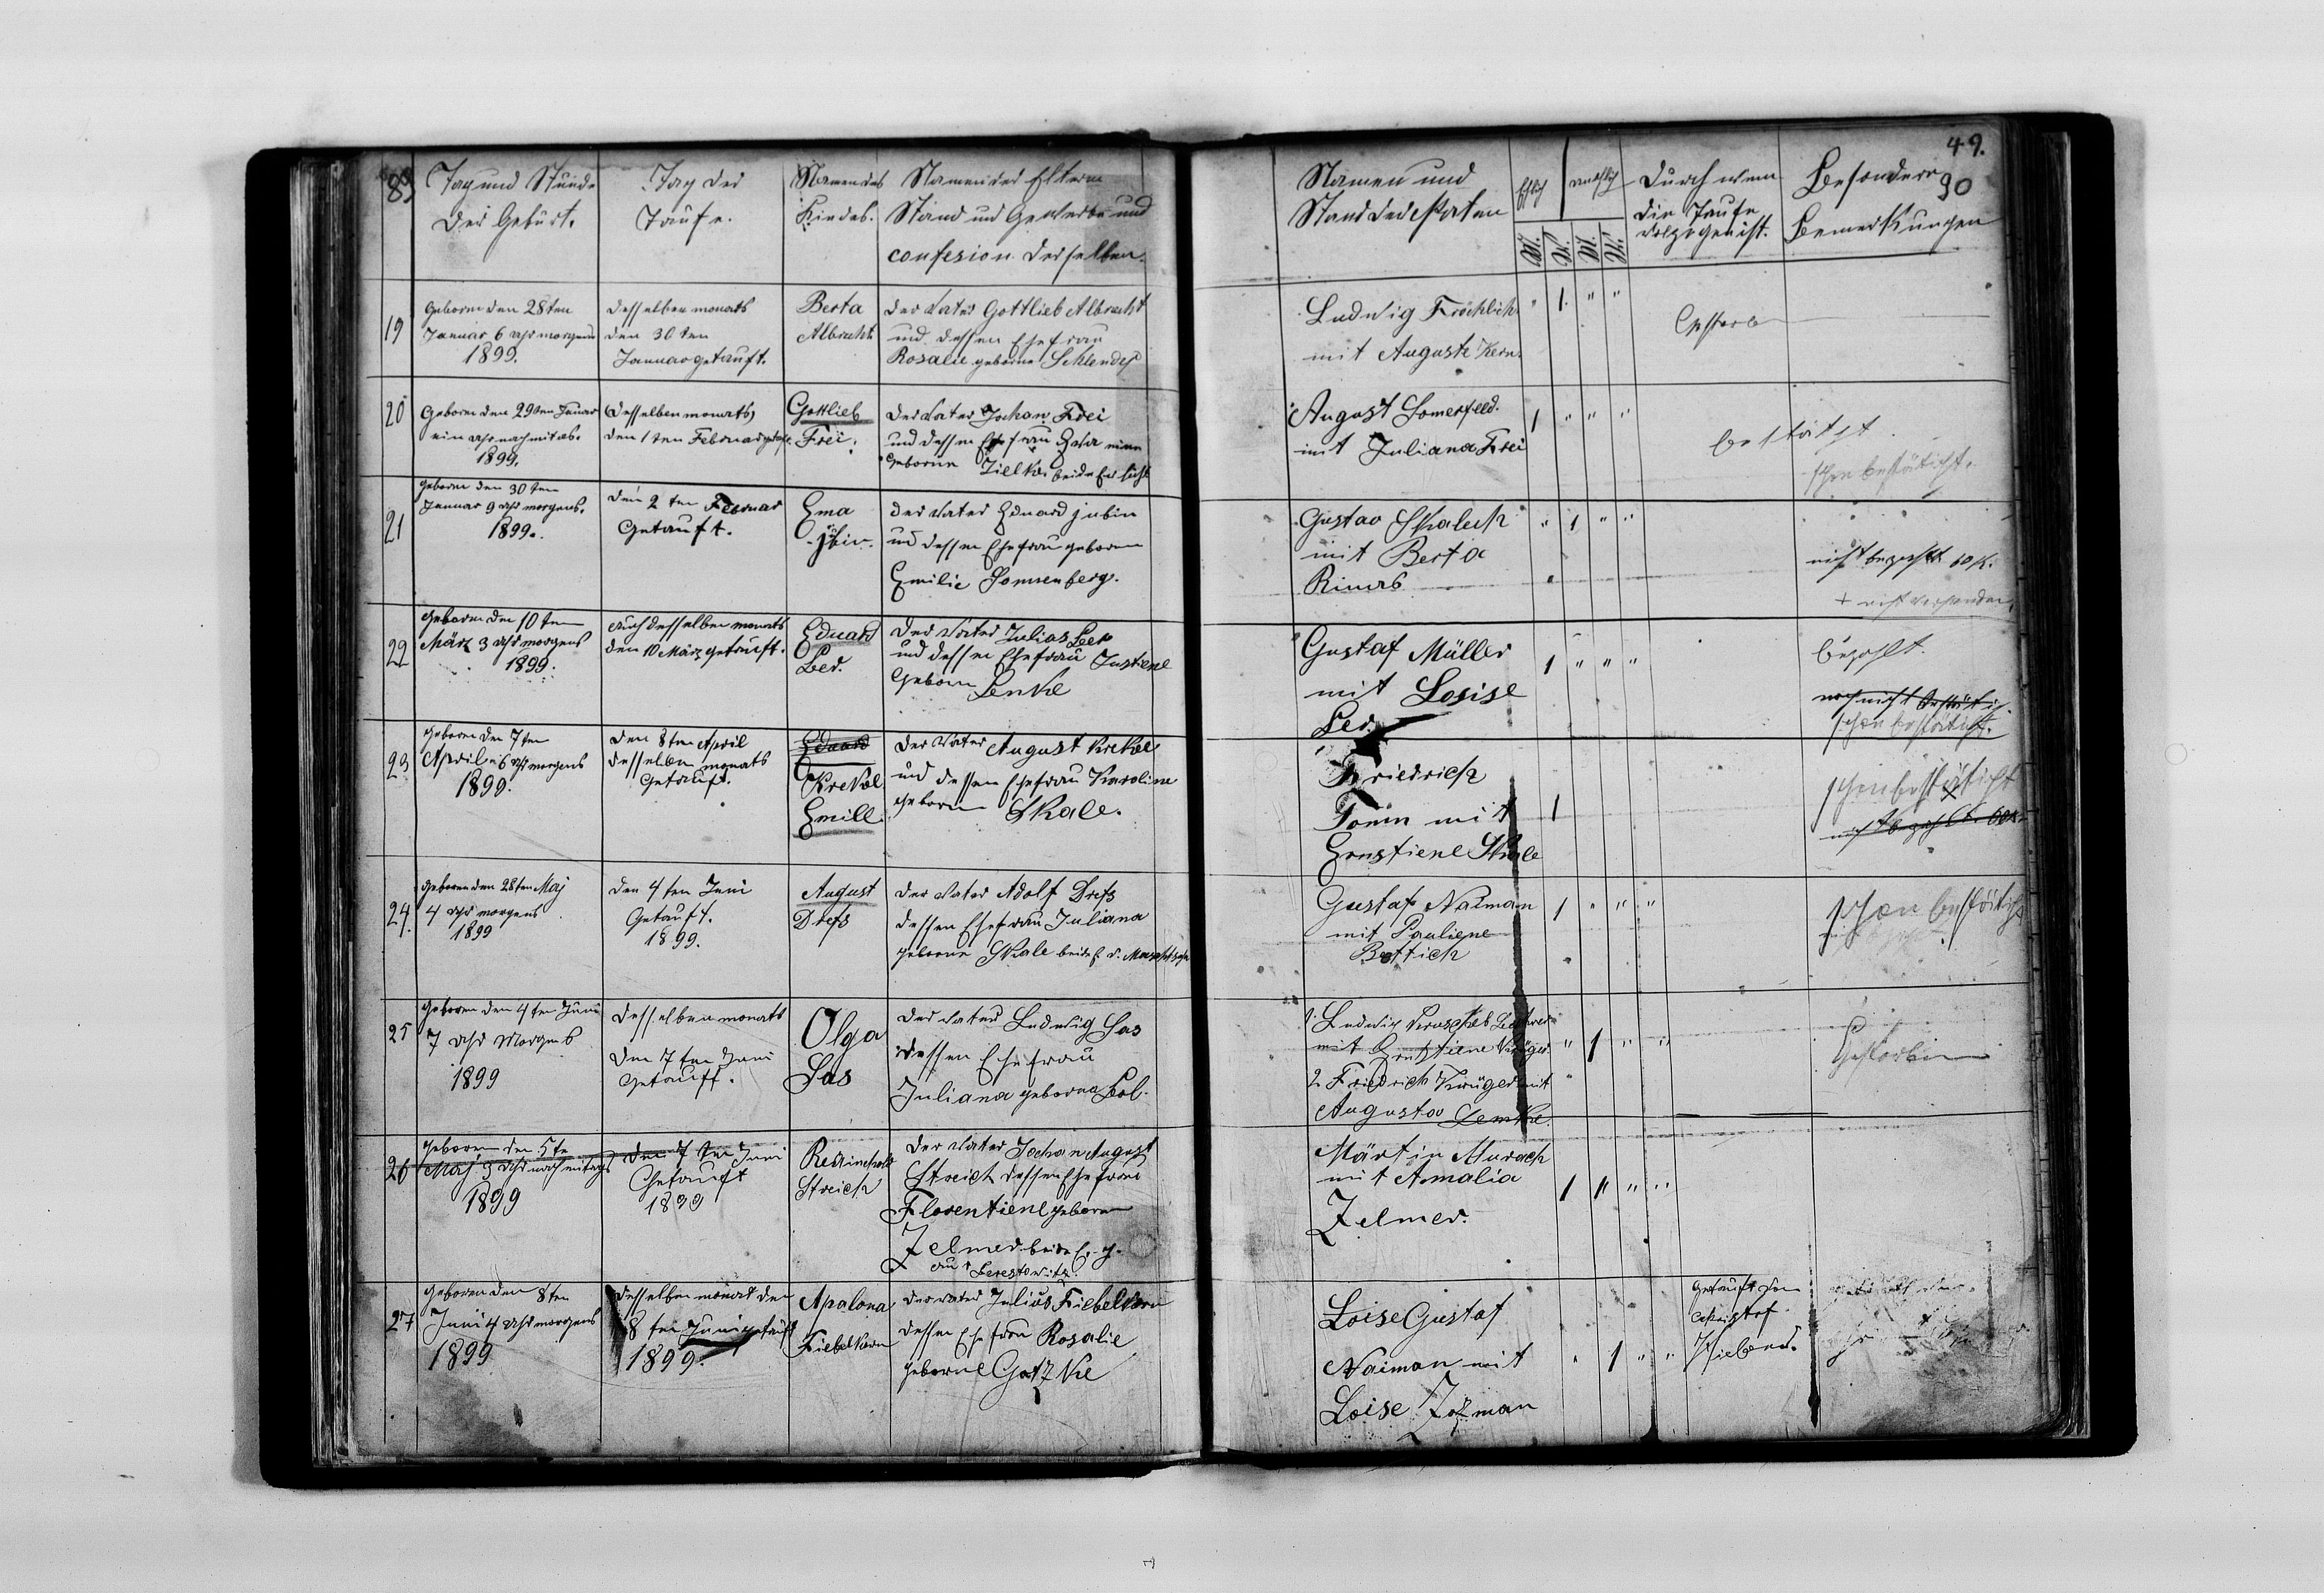 89 Tag und Stunde der Geburt.
Tag der Taufe.
Namen des Kindes.
Namen der Eltern Stand und Gewerbe und confesion derselben.
49.
90
Namen und Stand der Paten
Durch wem die Taufe
Besondere Bemerkungen
19
Geboren den 28ten
Januar 6 uhr morgens
1899.
desselben monats
den 30 ten
Januar getauft.
Berta
Albrecht
der Vater Gottlieb Albrecht
und dessen Ehefrau
Rosalie geborne
Ludwig Fröhlich
mit Auguste Kern
1.
Gestorben
20
Geboren den 29ten Januar
ein uhr nachmitas.
1899.
Desselben monats
den 1ten Februar
Gottlieb
Frei.
der Vater Johan Frei
und dessen Ehefrau
geborne Zielke beide
August Somerfeld.
mit Juliana Frei
1
bestätigt.
schon bestäticht.
21
geboren den 30 ten
Januar 9 uhr morgens.
1899.
den 2 ten Februar
Getauft.
Ema
der Vater Eduard jabin
und dessen Ehefrau geboren
Emilie Sonnenberg.
Gustav Skaleck
mit Berta
1
nicht bezahlt 60 K.
+ nicht vorhanden
22
geboren den 10 ten
März 3 uhr morgens
1899.
auch desselben monats
den 10 März getauft.
Eduard
Led.
der Vater Julias
und dessen Ehefrau Justiene
Geboren Lenke
Gustaf Müller
mit Losise
Led.
1
bezahlt.
noch nicht
schon bestäticht.
23
geboren den 7 ten
April 6 uhr morgens
1899.
den 8 ten April
desselben monats
Getauft.
Eduard
Krekel
Emill.
der Vater August Krekel
und dessen Ehefrau Karoline
geboren Skale.
Friedrich
mit
Ernstiene Skale
1
schon bestäticht
nicht bezahlt 60 K.
24.
geboren den 28 ten Maj
4 uhr morgens
1899
den 4 ten Juni
Getauft.
1899.
August
Drefs
der Vater Adolf Drefs
dessen Ehefrau Juliana
geborne Skale beide
Gustaf Naiman
mit Pauliene
1
schon bestäticht
25
geboren den 4 ten Juni
7 uhr Morgens
1899
desselben monats
den 7 ten Juni
Getauft.
Olga
Sas
der Vater Ludwig Sas
dessen Ehefrau
Juliana geborne
1. Ludwig
mit Ernstiene Krüger
2. Friedrich Krüger mit
Augusta Lemke.
1
Gestorben
26
geboren den 5 te
Maj 3 uhr nachmitags
1899
den 7 ten Juni
Getauft
1899
Streich
der Vater Johan August
Streich dessen Ehefrau
Florentiene geboren
Zelmer beide
aus
Märtin Murach
mit Amalia
Zelmer.
1
27
geboren den 8 ten
Juni 4 uhr morgens
1899
desselben monat den
8 ten Juni getauft
1899.
Apalona
Fiebelkorn
der vater Julius Fiebelkorn
dessen Ehefrau Rosalie
geborne Gatzke
Loise Gustaf
Naiman mit
Loise
1
getauft von